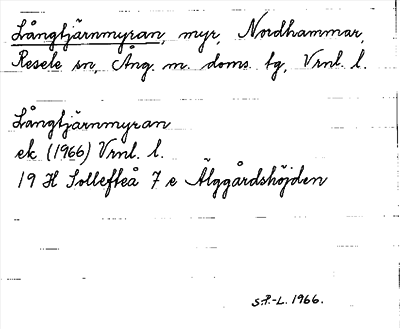 Långtjärnmyran, myr, Nordhammar,
Resele sn, Ång. m. doms. tg, Vrnl. l.
Långtjärnmyran
ek (1966) Vrnl. l.
19 H Sollefteå 7 e Älggårdshöjden
S.P.-L. 1966.